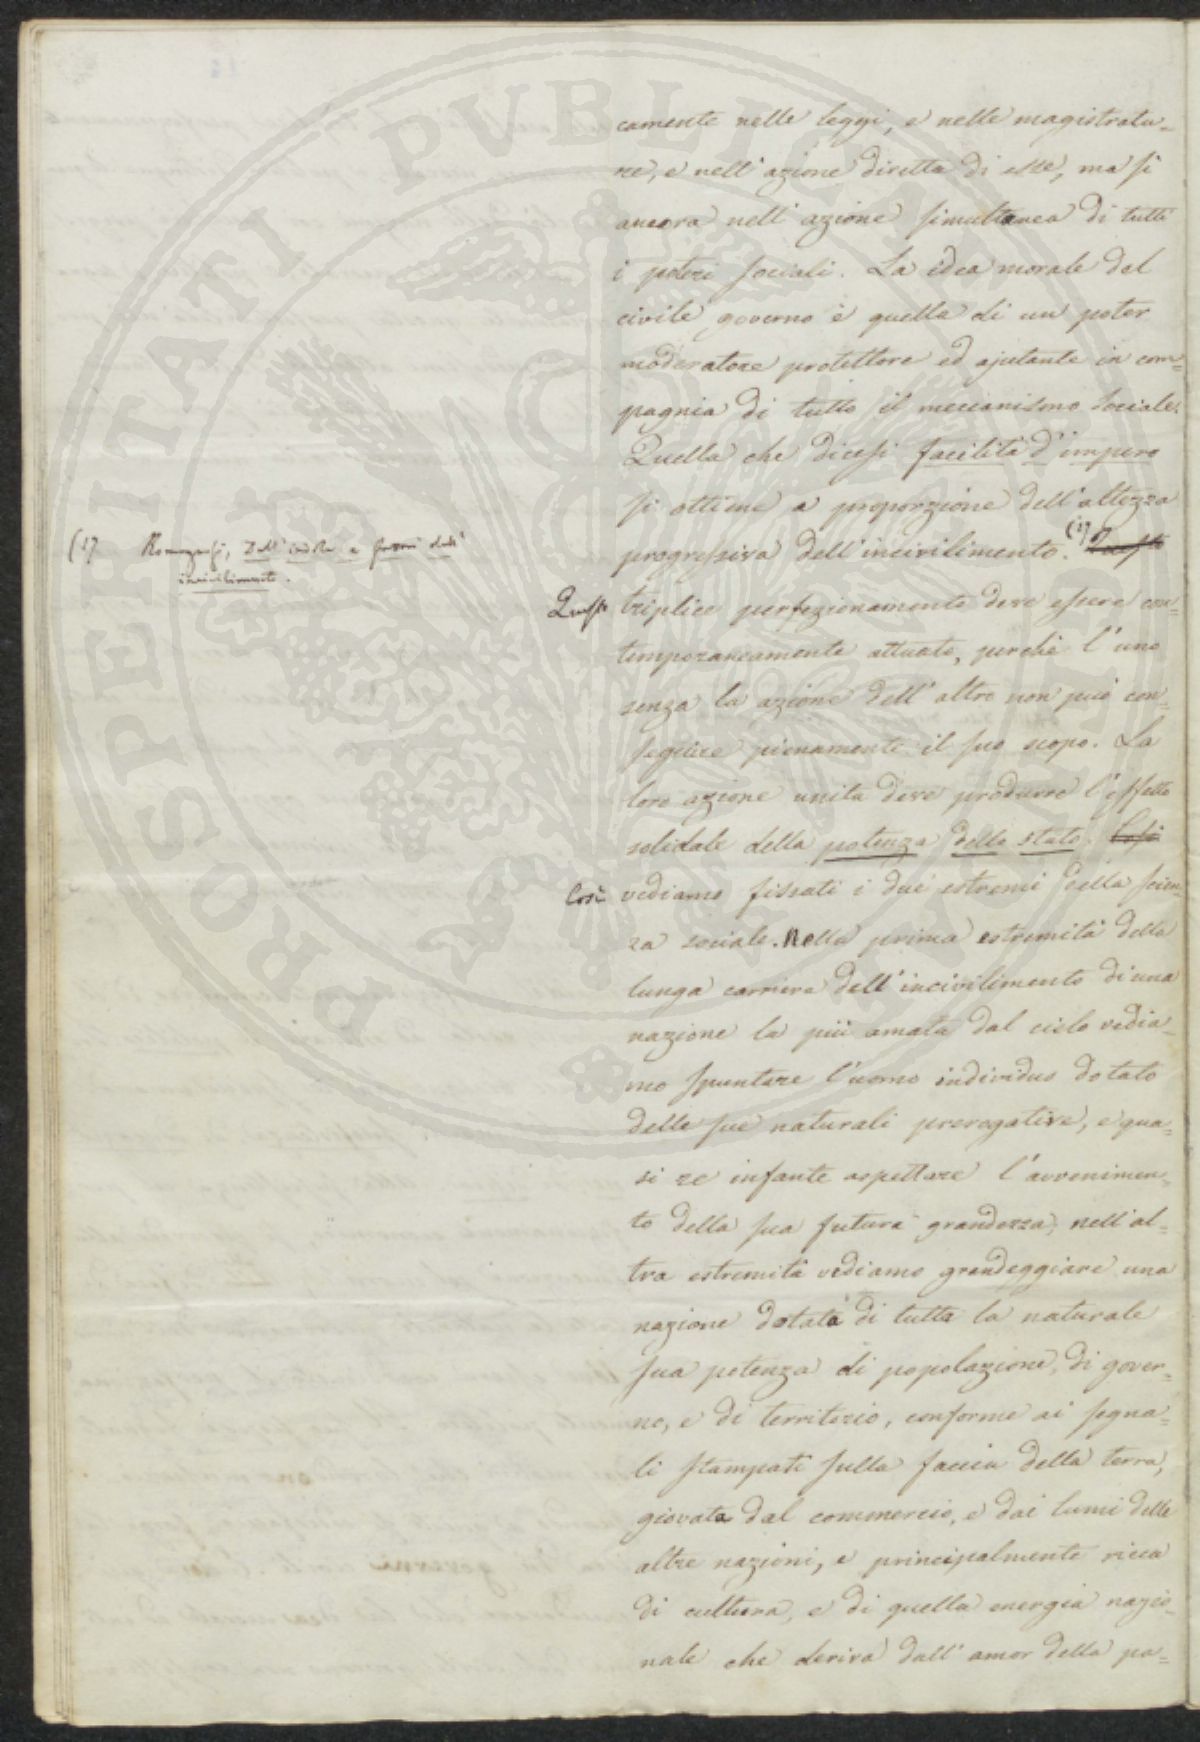 PROSPERITATI PVBLICAE
camente nelle leggi, e nelle magistratu=
re, e nell'azione diretta di esse, ma si
ancora nell'azione simultanea di tutti
i poteri sociali. La idea morale del
civile governo è quella di un poter
moderatore protettore ed ajutante in com=
pagnia di tutto il meccanismo sociale.
Quella che dicesi facilità d'impero
si ottiene a proporzione dell'altezza
progressiva dell'incivilimento. (1) Questo
(1) Romagnosi, Dell'indole e fattori dell'
incivilimento.
Questo triplice perfezionamento deve essere con=
temporaneamente attuato, perchè l'uno
senza la azione dell'altro non può con=
seguire pienamente il suo scopo. La
loro azione unita deve produrre l'effetto
solidale della potenza dello stato. Così
Così vediamo fissati i due estremi della scien=
za sociale. Nella prima estremità della
lunga carriera dell'incivilimento di una
nazione la più amata dal cielo vedia=
mo spuntare l'uomo individuo dotato
delle sue naturali prerogative, e qua=
si re infante aspettare l'avvenimen=
to della sua futura grandezza; nell'al=
tra estremità vediamo grandeggiare una
nazione dotata di tutta la naturale
sua potenza di popolazione, di gover=
no, e di territorio, conforme ai segna=
li stampati sulla faccia della terra,
giovata dal commercio, e dai lumi delle
altre nazioni, e principalmente ricca
di cultura, e di quella energia nazio=
nale che deriva dall'amor della pa=